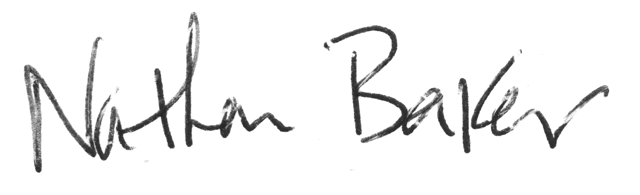 Nathan Baker